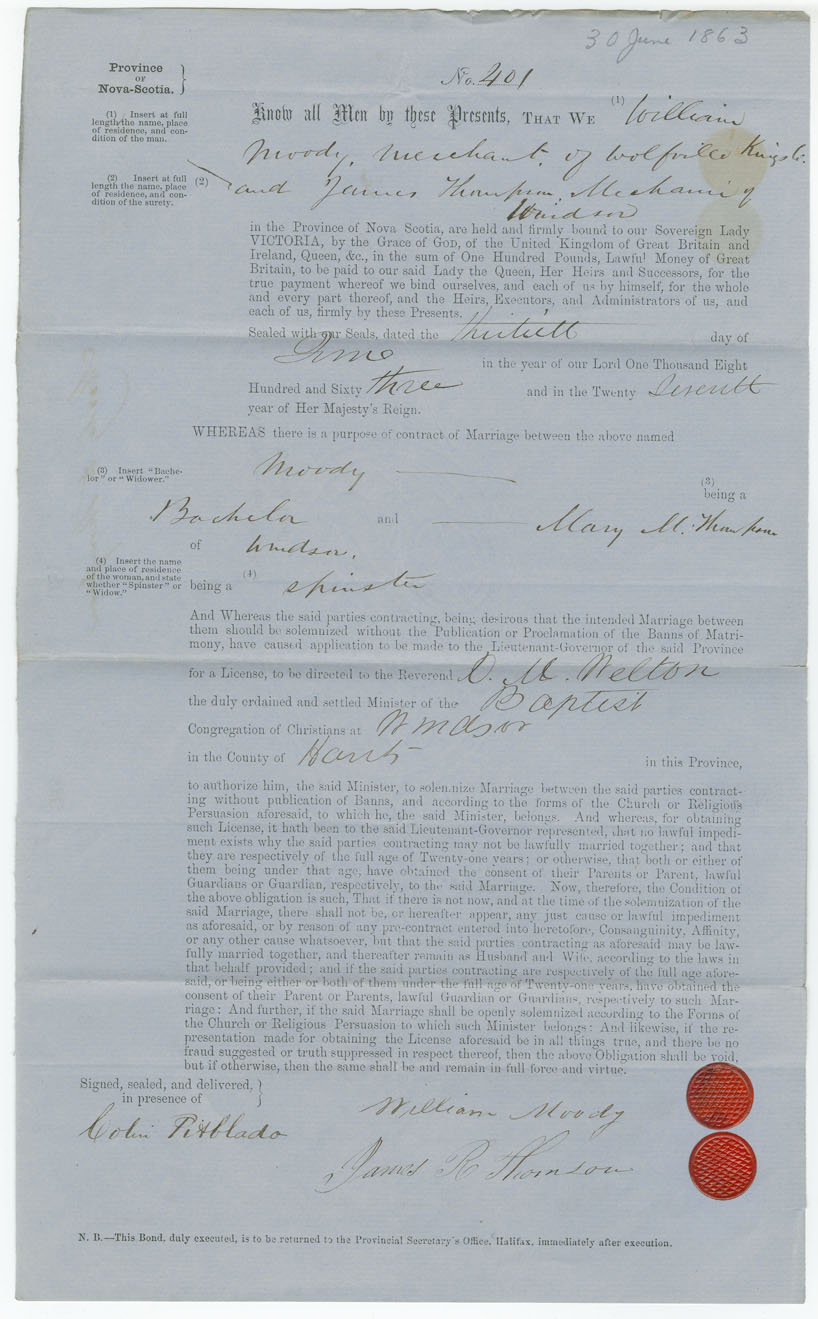 30 June 1863
Province
OF
Nova-Scotia.
No. 401
(1) Insert at full
length the name, place
of residence, and con-
dition of the man.
Know all Men by these Presents, THAT WE (1) William
Moody, Merchant, of Wolfville Kings Co.
(2) Insert at full
length the name, place
of residence, and con-
dition of the surety.
(2) and James Thompson, Mechanic of
Windsor
in the Province of Nova Scotia, are held and firmly bound to our Sovereign Lady
VICTORIA, by the Grace of GOD, of the United Kingdom of Great Britain and
Ireland, Queen, &c., in the sum of One Hundred Pounds, Lawful Money of Great
Britain, to be paid to our said Lady the Queen, Her Heirs and Successors, for the
true payment whereof we bind ourselves, and each of us by himself, for the whole
and every part thereof, and the Heirs, Executors, and Administrators of us, and
each of us, firmly by these Presents.
Sealed with our Seals, dated the thirtieth day of
June in the year of our Lord One Thousand Eight
Hundred and Sixty three and in the Twenty Seventh
year of Her Majesty's Reign.
WHEREAS there is a purpose of contract of Marriage between the above named
(3) Insert "Bache-
lor" or "Widower."
Moody
(3)
being a
Bachelor and Mary M. Thompson
of Windsor,
(4) Insert the name
and place of residence
of the woman, and state
whether "Spinster" or
"Widow."
being a (4) spinster
And Whereas the said parties contracting, being desirous that the intended Marriage between
them should be solemnized without the Publication or Proclamation of the Banns of Matri-
mony, have caused application to be made to the Lieutenant-Governor of the said Province
for a License, to be directed to the Reverend D. M. Welton
the duly ordained and settled Minister of the Baptist
Congregation of Christians at Windsor
in the County of Hants in this Province,
to authorize him, the said Minister, to solemnize Marriage between the said parties contract-
ing without publication of Banns, and according to the forms of the Church or Religious
Persuasion aforesaid, to which he, the said Minister, belongs. And whereas, for obtaining
such License, it hath been to the said Lieutenant-Governor represented, that no lawful impedi-
ment exists why the said parties contracting may not be lawfully married together; and that
they are respectively of the full age of Twenty-one years; or otherwise, that both or either of
them being under that age, have obtained the consent of their Parents or Parent, lawful
Guardians or Guardian, respectively, to the said Marriage. Now, therefore, the Condition of
the above obligation is such, That if there is not now, and at the time of the solemnization of the
said Marriage, there shall not be, or hereafter appear, any just cause or lawful impediment
as aforesaid, or by reason of any pre-contract entered into heretofore, Consanguinity, Affinity,
or any other cause whatsoever, but that the said parties contracting as aforesaid may be law-
fully married together, and thereafter remain as Husband and Wife, according to the laws in
that behalf provided; and if the said parties contracting are respectively of the full age afore-
said, or being either or both of them under the full age of Twenty-one years, have obtained the
consent of their Parent or Parents, lawful Guardian or Guardians, respectively to such Mar-
riage: And further, if the said Marriage shall be openly solemnized according to the Forms of
the Church or Religious Persuasion to which such Minister belongs: And likewise, if the re-
presentation made for obtaining the License aforesaid be in all things true, and there be no
fraud suggested or truth suppressed in respect thereof, then the above Obligation shall be void,
but if otherwise, then the same shall be and remain in full force and virtue.
Signed, sealed, and delivered,
in presence of
William Moody
Colin Pitblado
James R Thomson
N. B.—This Bond, duly executed, is to be returned to the Provincial Secretary's Office, Halifax, immediately after execution.